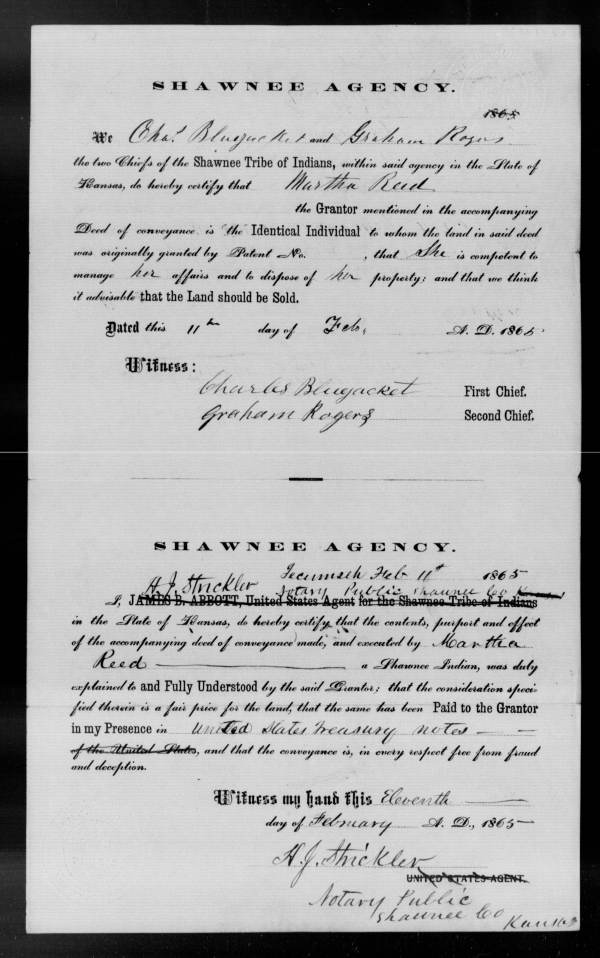 SHAWNEE AGENCY.
1865
We Chas. Blugjacket and Graham Rogers
the two Chiefs of the Shawnee Tribe of Indians, within said agency in the State of
Kansas, do hereby certify that Martha Reed
the Grantor mentioned in the accompanying
Deed of conveyance is the Identical Individual to whom the land in said deed
was originally granted by Patent No. , that She is competent to
manage her affairs and to dispose of her property; and that we think
it advisable that the Land should be Sold.
Dated this 11th day of Feb. A. D. 1865
Witness:
Charles Blugjacket First Chief.
Graham Rogers Second Chief.
SHAWNEE AGENCY.
Tecumseh Feb 11th 1865
H. J. Strickler Notary Public Shawnee Co Kansas
I, JAMES B. ABBOTT, United States Agent for the Shawnee Tribe of Indians
in the State of Kansas, do hereby certify that the contents, purport and effect
of the accompanying deed of conveyance made, and executed by Martha
Reed a Shawnee Indian, was duly
explained to and Fully Understood by the said Grantor; that the consideration speci-
fied therein is a fair price for the land, that the same has been Paid to the Grantor
in my Presence in United States Treasury notes
of the United States, and that the conveyance is, in every respect free from fraud
and deception.
Witness my hand this Eleventh
day of February A. D., 1865
H. J. Strickler
UNITED STATES AGENT.
Notary Public
Shawnee Co Kansas